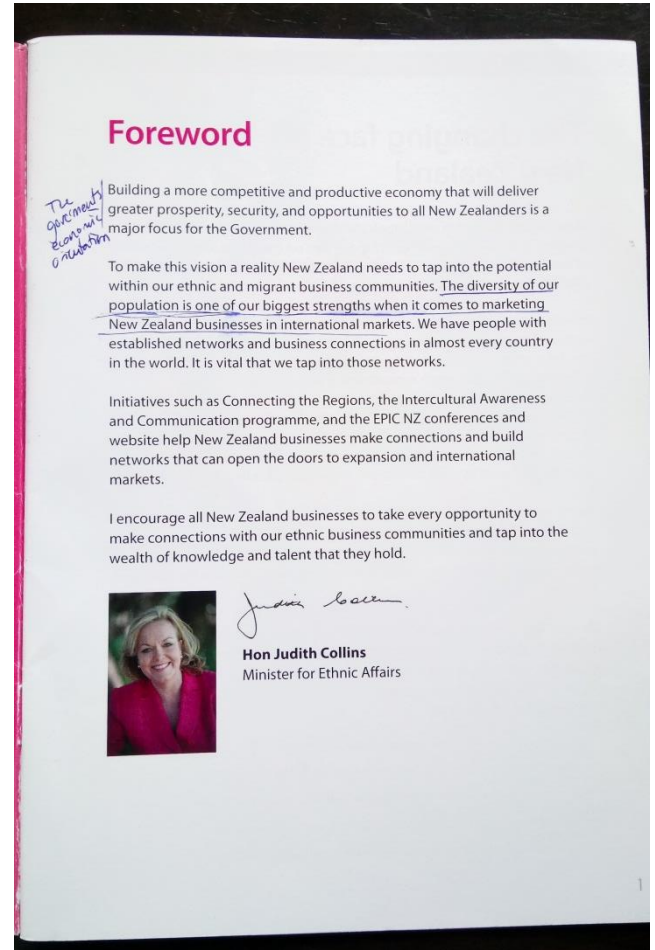 Foreword
The
goveriments'
economic
orientation
Building a more competitive and productive economy that will deliver
greater prosperity, security, and opportunities to all New Zealanders is a
major focus for the Government.
To make this vision a reality New Zealand needs to tap into the potential
within our ethnic and migrant business communities. The diversity of our
population is one of our biggest strengths when it comes to marketing
New Zealand businesses in international markets. We have people with
established networks and business connections in almost every country
in the world. It is vital that we tap into those networks.
Initiatives such as Connecting the Regions, the Intercultural Awareness
and Communication programme, and the EPIC NZ conferences and
website help New Zealand businesses make connections and build
networks that can open the doors to expansion and international
markets.
I encourage all New Zealand businesses to take every opportunity to
make connections with our ethnic business communities and tap into the
wealth of knowledge and talent that they hold.
Judith Collins
Hon Judith Collins
Minister for Ethnic Affairs
1